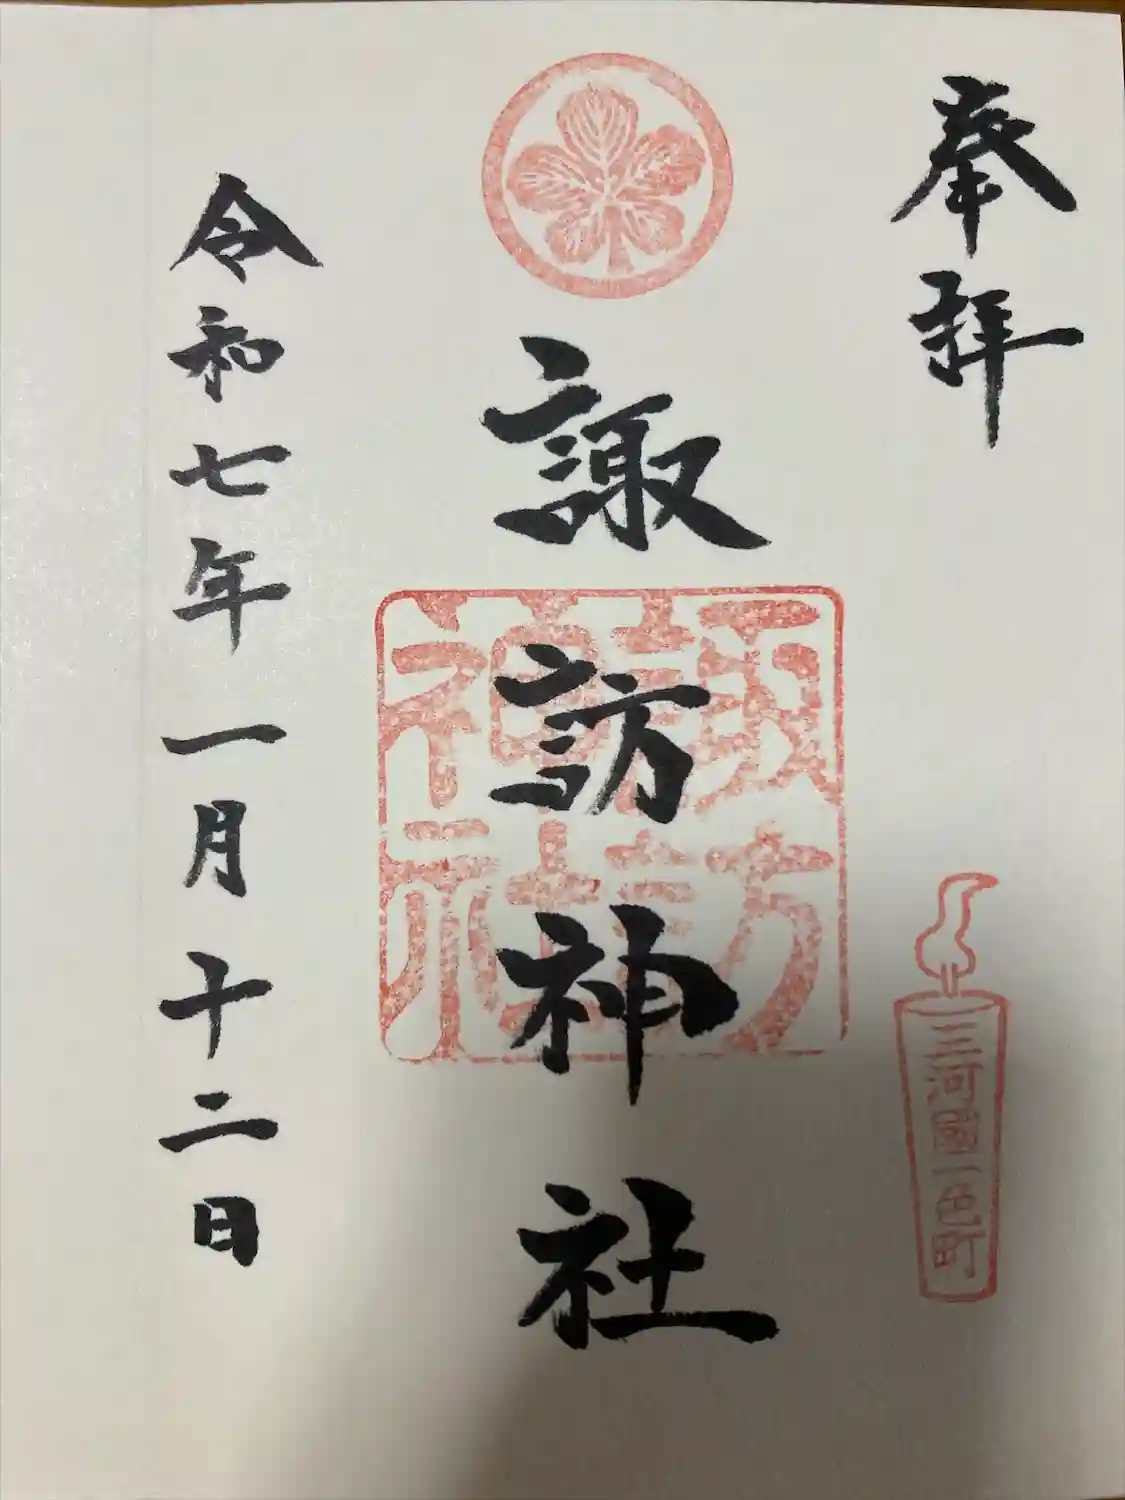 奉拝
三河國一色町
諏訪神社
諏訪神社
令和七年一月十二日